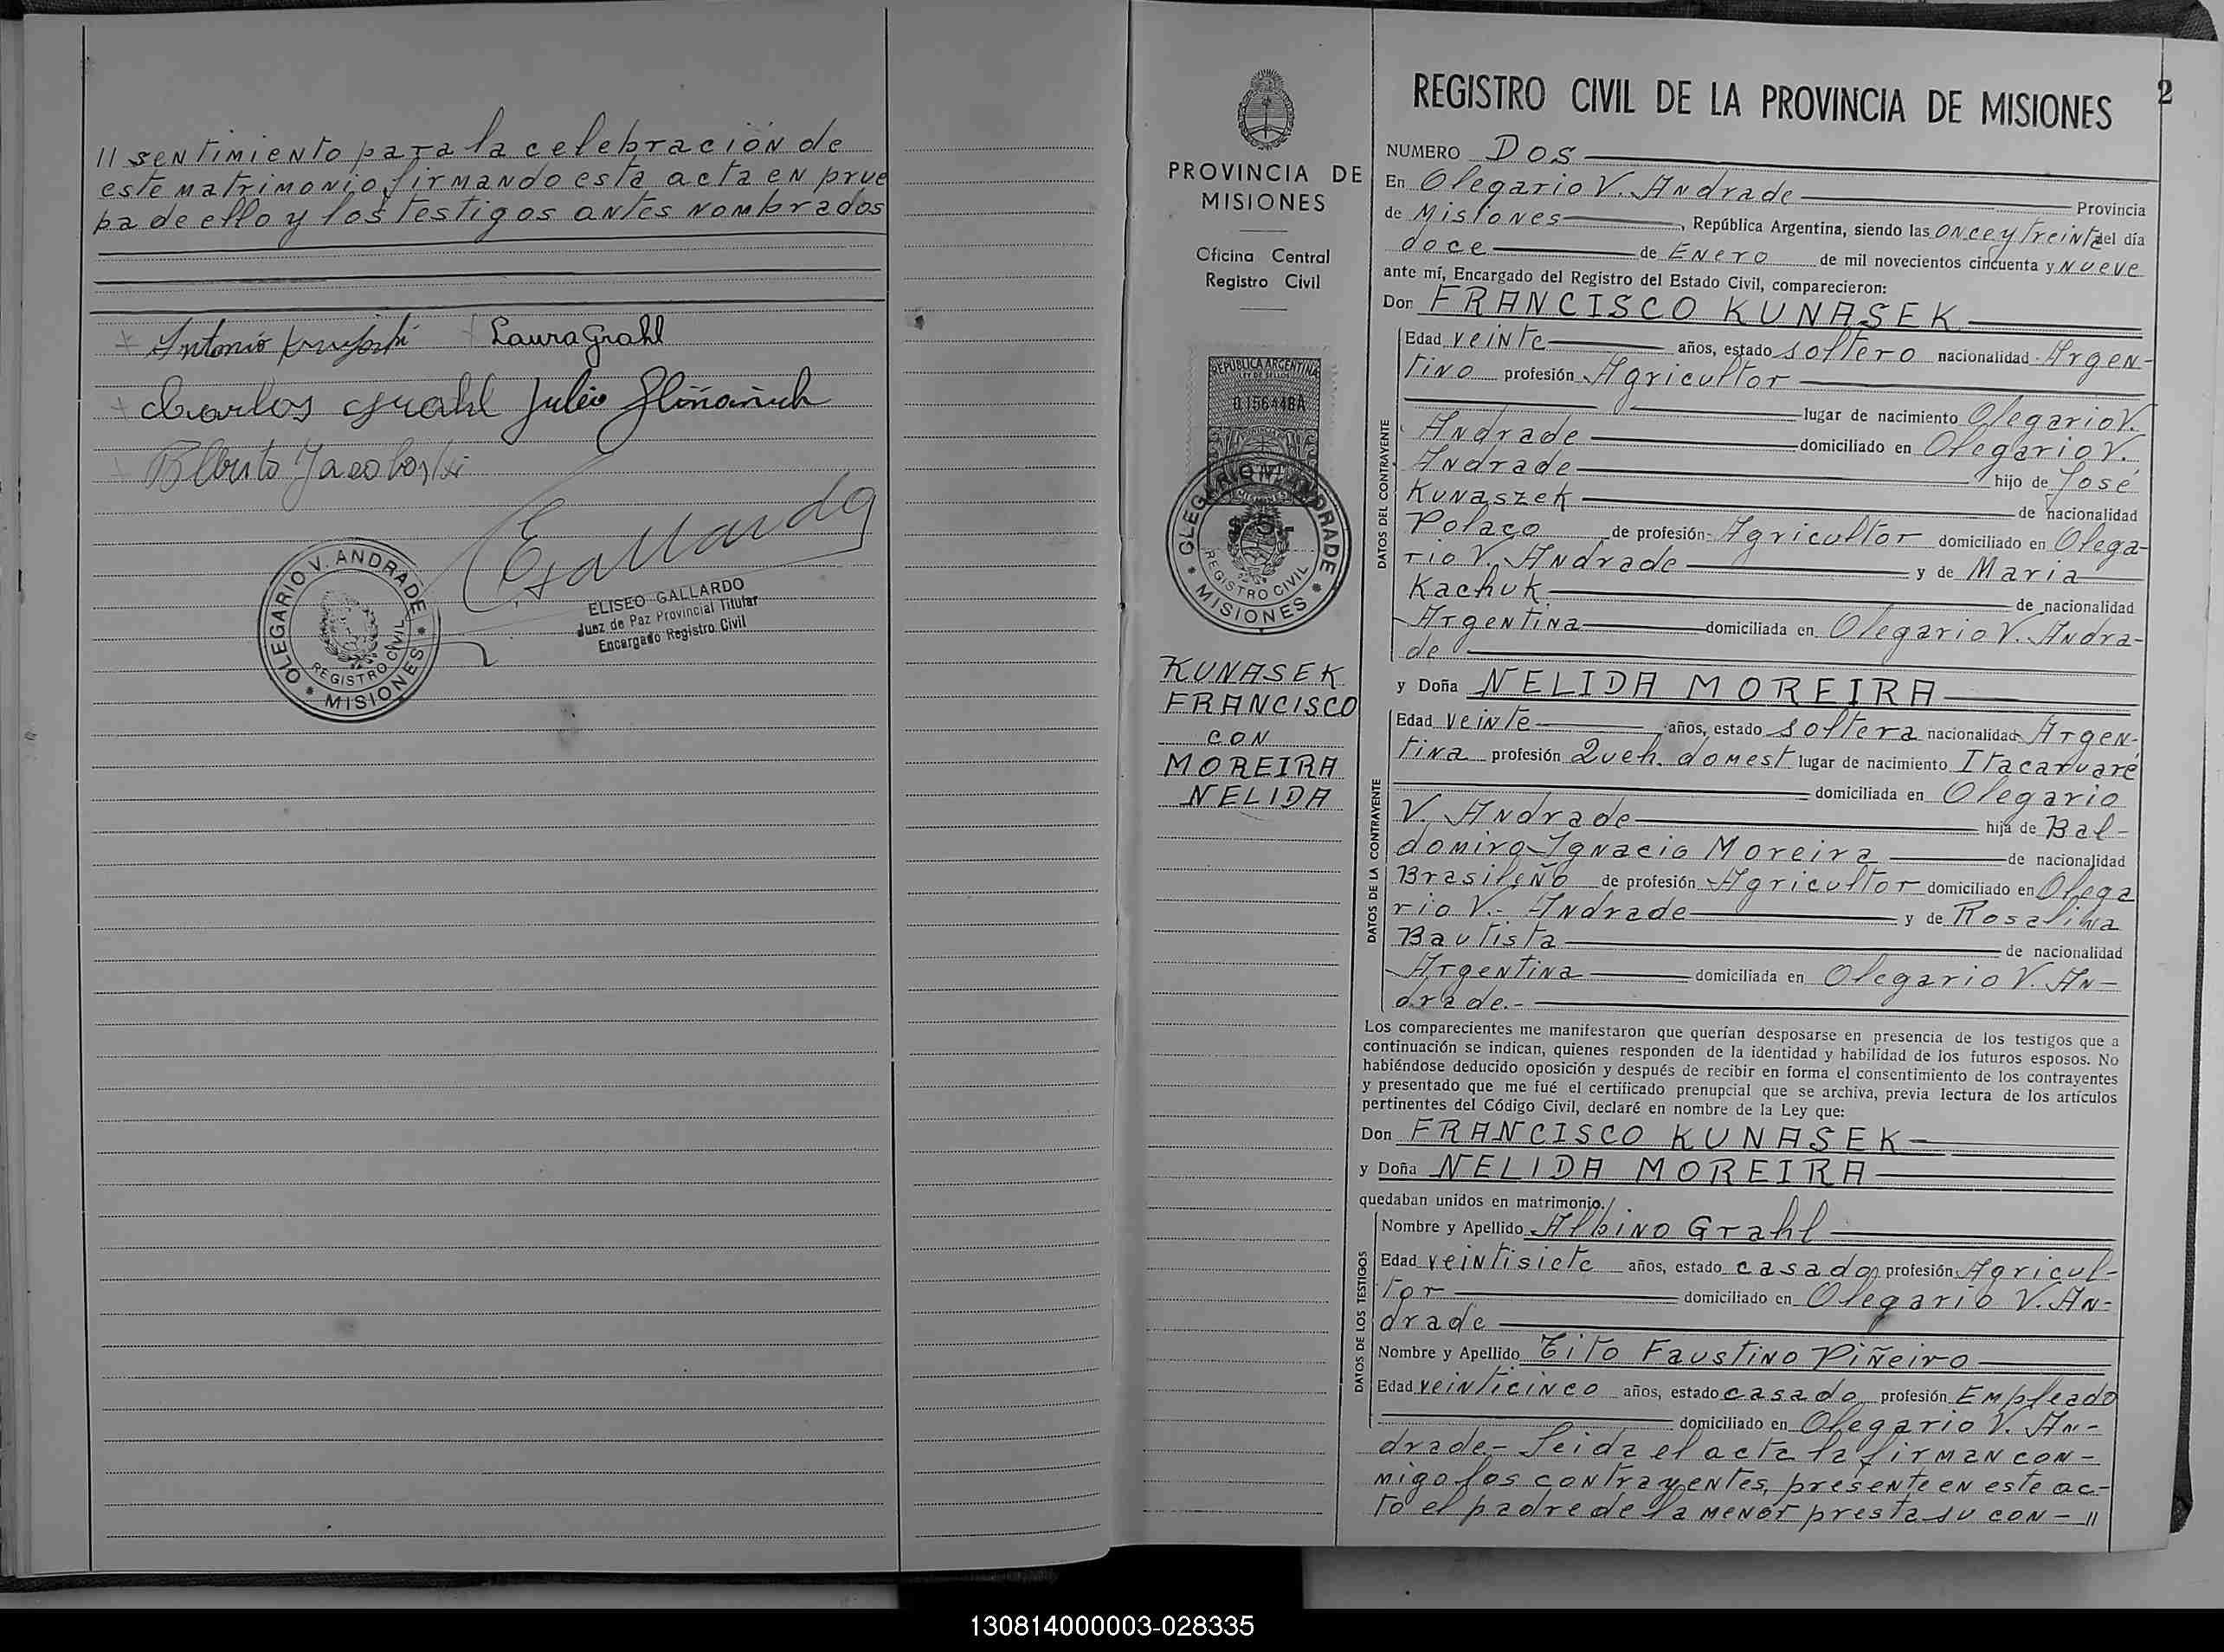 // sentimiento para la celebración de
este matrimonio firmando esta acta en prue
ba de ello y los testigos antes nombrados
Antonio Laura Grahl
Carlos Grahl Julio
Alberto Jacoboski
Gallardo
OLEGARIO V. ANDRADE
REGISTRO CIVIL
* MISIONES *
ELISEO GALLARDO
Juez de Paz Provincial Titular
Encargado Registro Civil
PROVINCIA DE
MISIONES
Oficina Central
Registro Civil
REPUBLICA ARGENTINA
0.156448A
OLEGARIO V. ANDRADE
REGISTRO CIVIL
* MISIONES *
KUNASEK
FRANCISCO
CON
MOREIRA
NELIDA
2
REGISTRO CIVIL DE LA PROVINCIA DE MISIONES
NUMERO Dos
En Olegario V. Andrade Provincia
de Misiones, República Argentina, siendo las once y treinta del día
doce de Enero de mil novecientos cincuenta y nueve
ante mí, Encargado del Registro del Estado Civil, comparecieron:
Don FRANCISCO KUNASEK
DATOS DEL CONTRAYENTE
Edad veinte años, estado soltero nacionalidad Argen-
tino profesión Agricultor
lugar de nacimiento Olegario V.
Andrade domiciliado en Olegario V.
Andrade hijo de José
Kunaszek de nacionalidad
Polaco de profesión Agricultor domiciliado en Olega-
rio V. Andrade y de Maria
Kachuk de nacionalidad
Argentina domiciliada en Olegario V. Andra-
de
y Doña NELIDA MOREIRA
DATOS DE LA CONTRAYENTE
Edad veinte años, estado soltera nacionalidad Argen-
tina profesión Queh. domest lugar de nacimiento Itacaruaré
domiciliada en Olegario
V. Andrade hija de Bal-
domiro Ignacio Moreira de nacionalidad
Brasileño de profesión Agricultor domiciliado en Olega
rio V.- Andrade y de Rosalina
Bautista de nacionalidad
Argentina domiciliada en Olegario V. An-
drade.-
Los comparecientes me manifestaron que querían desposarse en presencia de los testigos que a
continuación se indican, quienes responden de la identidad y habilidad de los futuros esposos. No
habiéndose deducido oposición y después de recibir en forma el consentimiento de los contrayentes
y presentado que me fué el certificado prenupcial que se archiva, previa lectura de los artículos
pertinentes del Código Civil, declaré en nombre de la Ley que:
Don FRANCISCO KUNASEK
y Doña NELIDA MOREIRA
quedaban unidos en matrimonio.
DATOS DE LOS TESTIGOS
Nombre y Apellido Albino Grahl
Edad veintisiete años, estado casado profesión Agricul-
tor domiciliado en Olegario V. An-
drade
Nombre y Apellido Tito Faustino Piñeiro
Edad veinticinco años, estado casado profesión Empleado
domiciliado en Olegario V. An-
drade.- Leida el acta la firman con-
migo los contrayentes, presente en este ac-
to el padre de la menor presta su con- //
130814000003-028335